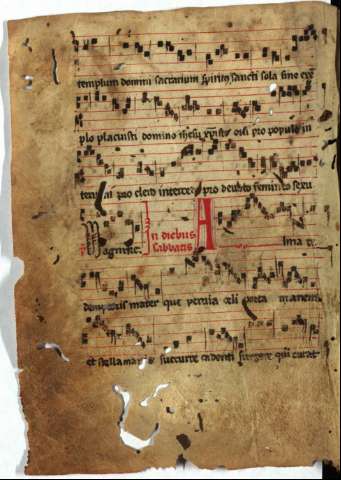 templum domini sacrarium spiritus sancti sola sine exe
plo placuisti domino ihesu xpisto ora pro populo in
terueni pro clero intercede pro deuoto femineo sexu
Magnificat In diebus sabbatis Alma re
demptoris mater que peruia celi porta manens
et stella maris succurre cadenti surgere qui curat